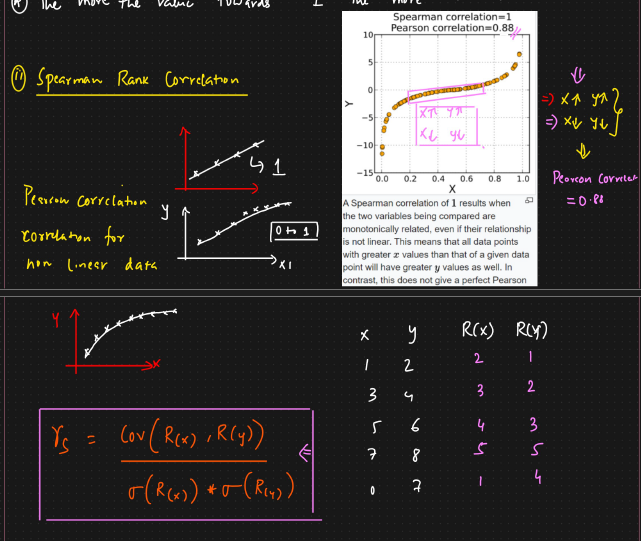 The more the value towards 1 the more
(ii) Spearman Rank Correlation
1
Pearson correlation
correlation for
non linear data
y
0 to 1
x1
Spearman correlation=1
Pearson correlation=0.88
10
5
0
−5
−10
−15
0.0 0.2 0.4 0.6 0.8 1.0
X
Y
X↑ Y↑
X↓ Y↓
A Spearman correlation of 1 results when
the two variables being compared are
monotonically related, even if their relationship
is not linear. This means that all data points
with greater x values than that of a given data
point will have greater y values as well. In
contrast, this does not give a perfect Pearson
⇓
⇒ X↑ Y↑
⇒ X↓ Y↓
⇓
Pearson Correlat
= 0.88
Y
X
γs = Cov(R(x), R(y))
σ(R(x)) * σ(R(y))
⇐
x y R(x) R(y)
1 2 2 1
3 4 3 2
5 6 4 3
7 8 5 5
0 7 1 4